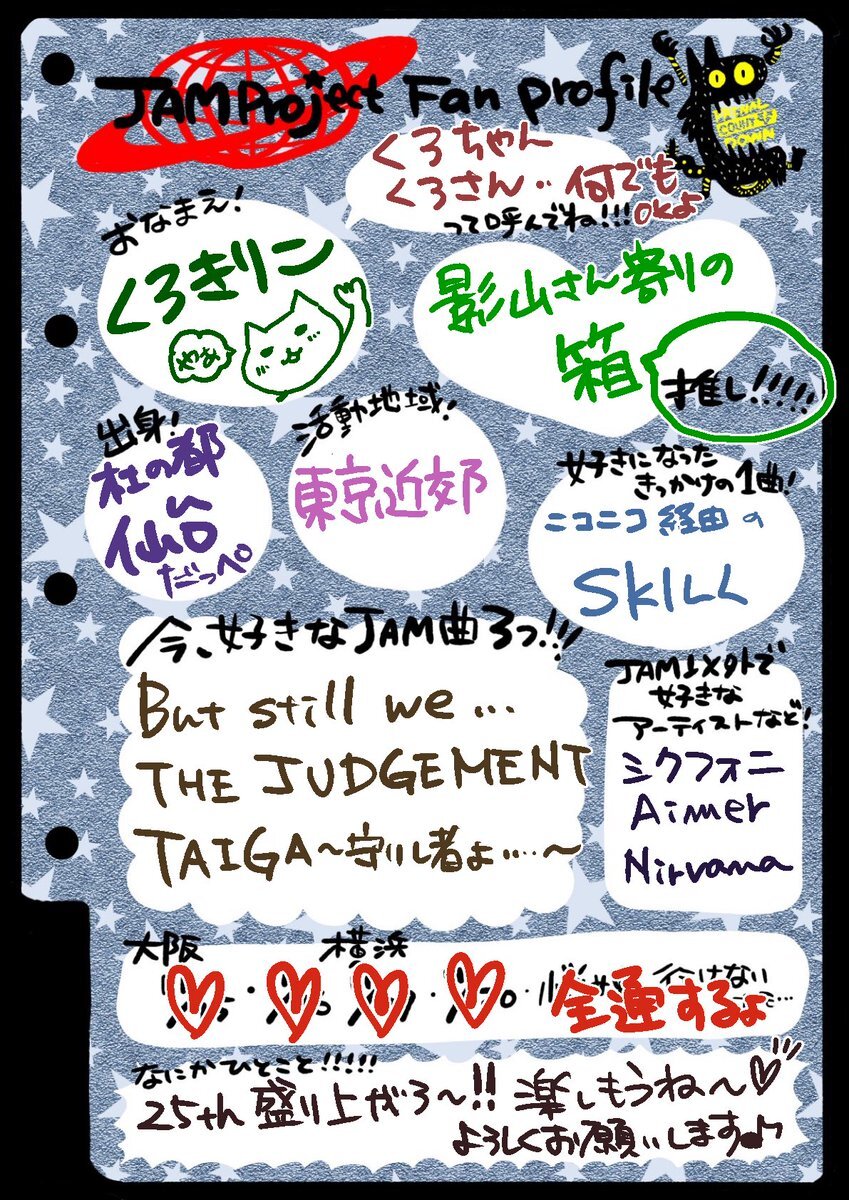 JAM Project Fan profile
くろちゃん
くろさん‥何でも
OKよ
って呼んでね!!!
おなまえ!
くろきリン
やぁ
影山さん寄りの
箱
推し!!!!!
出身!
杜の都
仙台
だっぺ。
活動地域!
東京近郊
好きになった
きっかけの1曲!
ニコニコ経由の
SKILL
今、好きなJAM曲3つ!!!
But still we...
THE JUDGEMENT
TAIGA〜守りし者よ……〜
JAM以外で
好きな
アーティストなど!
シクフォニ
Aimer
Nirvana
大阪
横浜
行けない
全通するよ
なにかひとこと!!!!!
25th 盛り上がろ〜!! 楽しもうね〜♡
よろしくお願いします♪